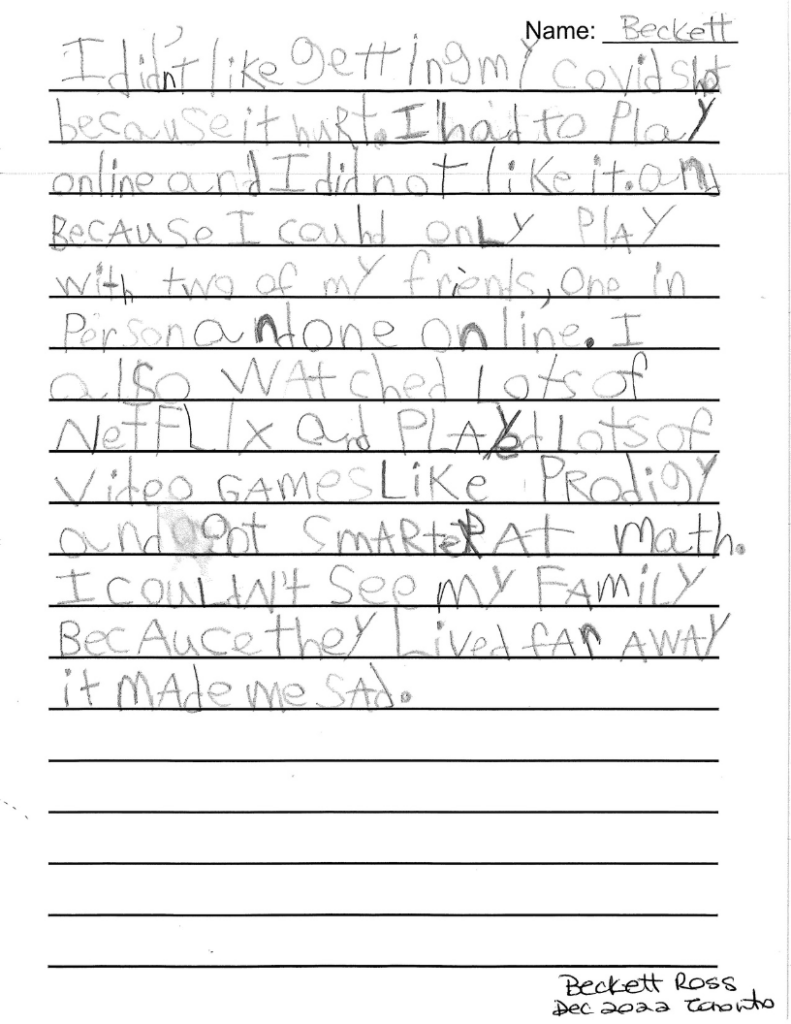 Name: Beckett
I didn't like getting my covid shot
because it hurt. I had to Play
online and I did not like it. and
BecAuse I could only PlAy
with two of my friends, one in
Person and one online. I
also WAtched Lots of
NetFLix and PLAyed Lots of
Video GAmes LiKe PRodigy
and got SmARteR At math.
I couLdN't See my FAmiLy
BecAuce they Lived fAr AWAY
it mAde me SAd.
Beckett Ross
Dec 2022 Toronto